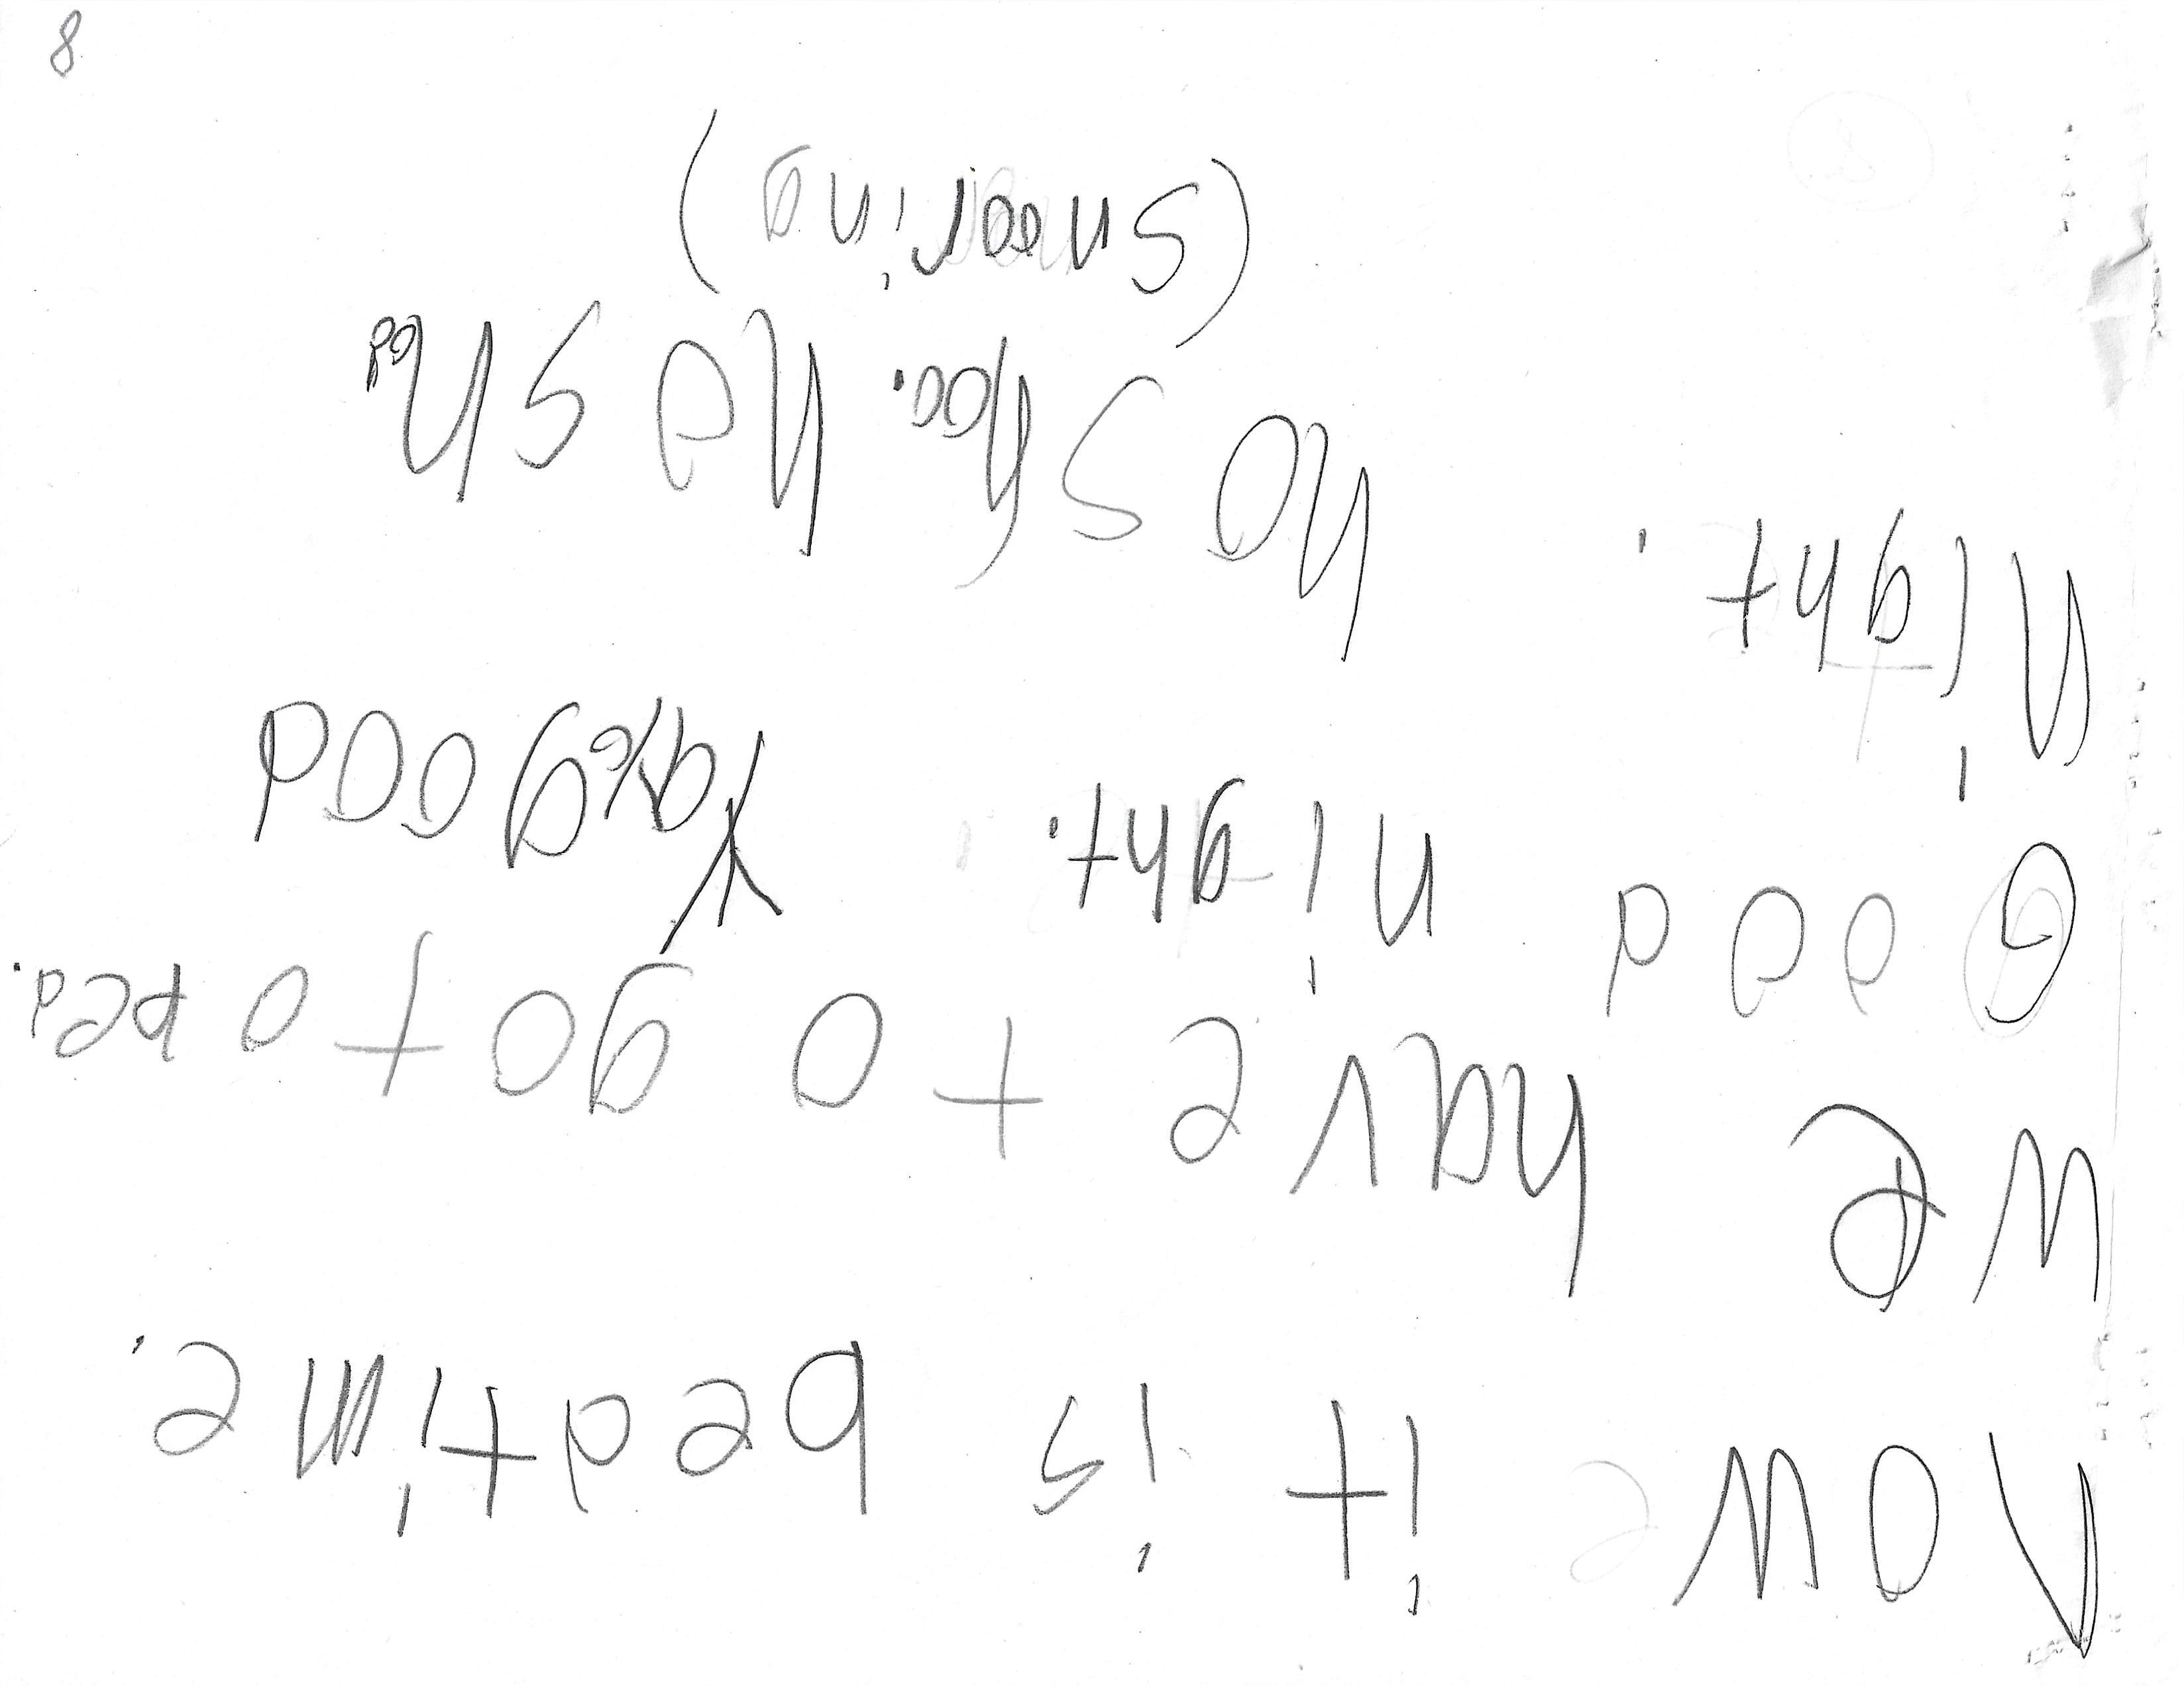 Now it is bedtime.
we have to go to bed.
Good night. good
night. ho shoo.
(snooring)
8